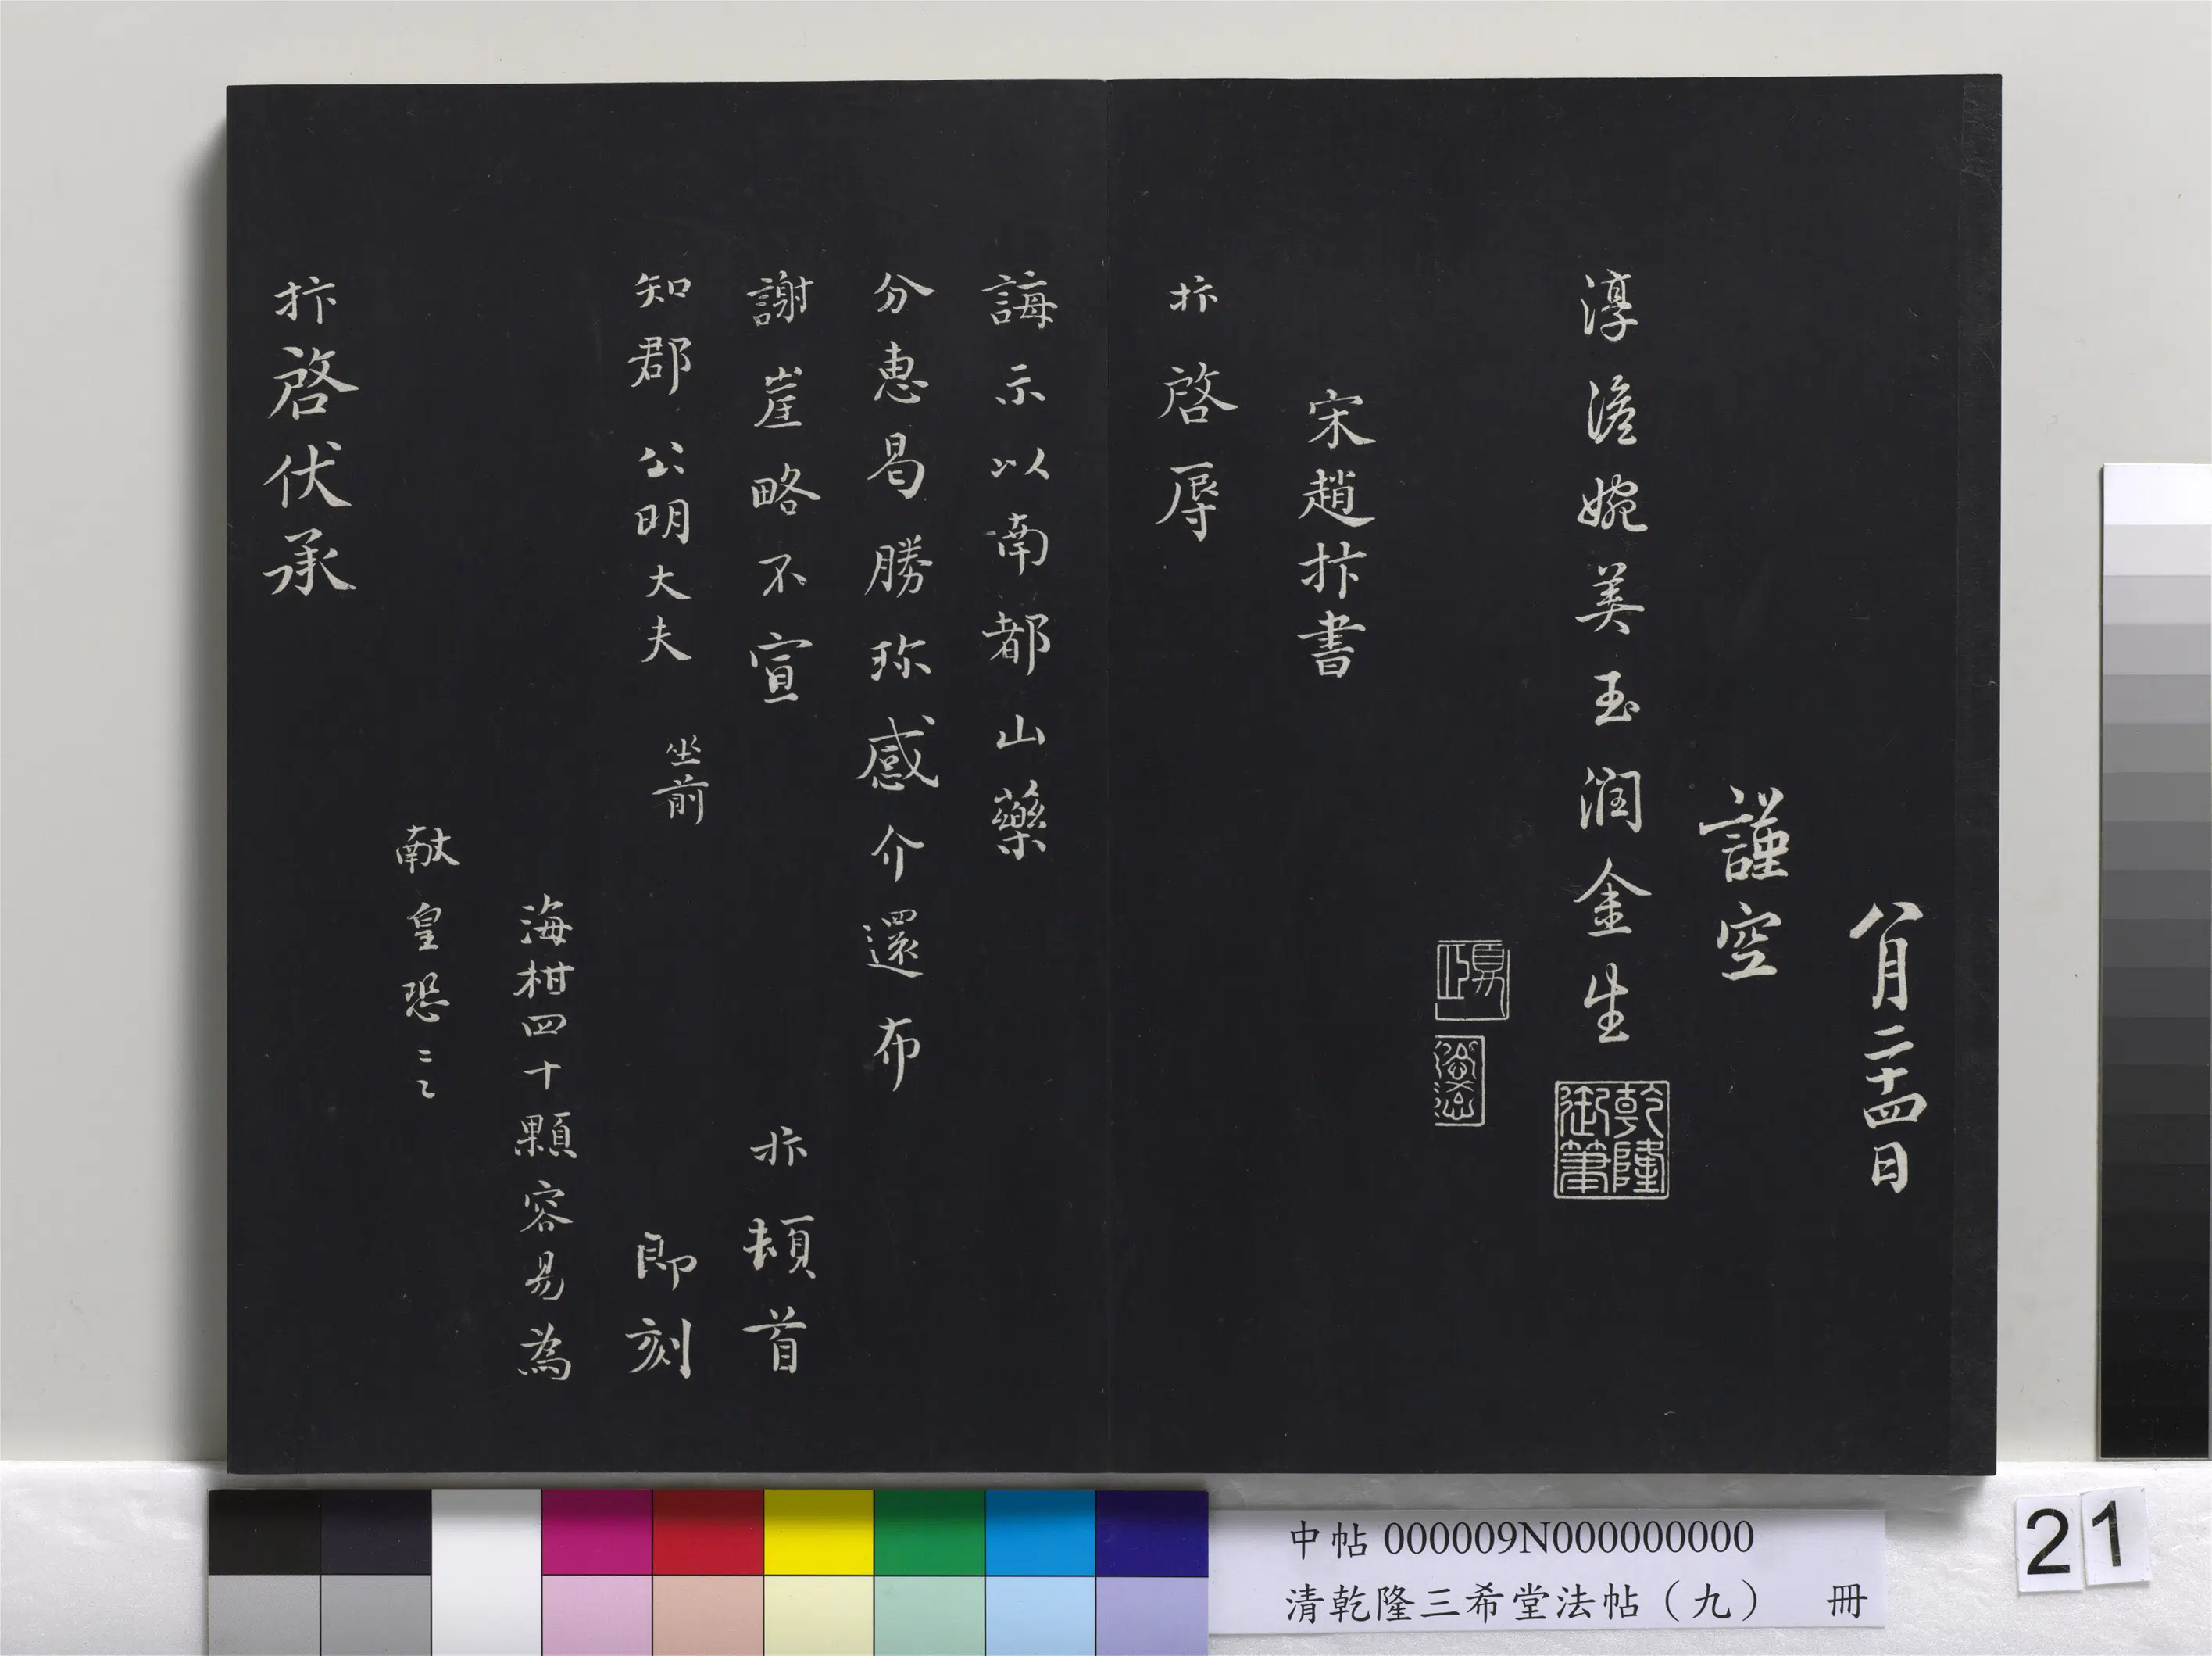 八月二十四日
謹空
淳澹婉美玉潤金生
乾隆御筆
宋趙抃書
抃啓辱
誨示以南都山藥
分惠曷勝珎感介還布
謝崖略不宣 抃頓首
知郡公明大夫 坐前 即刻
海柑四十顆容易為
献皇恐二之
抃啓伏承
中帖 000009N000000000
清乾隆三希堂法帖（九） 冊
21